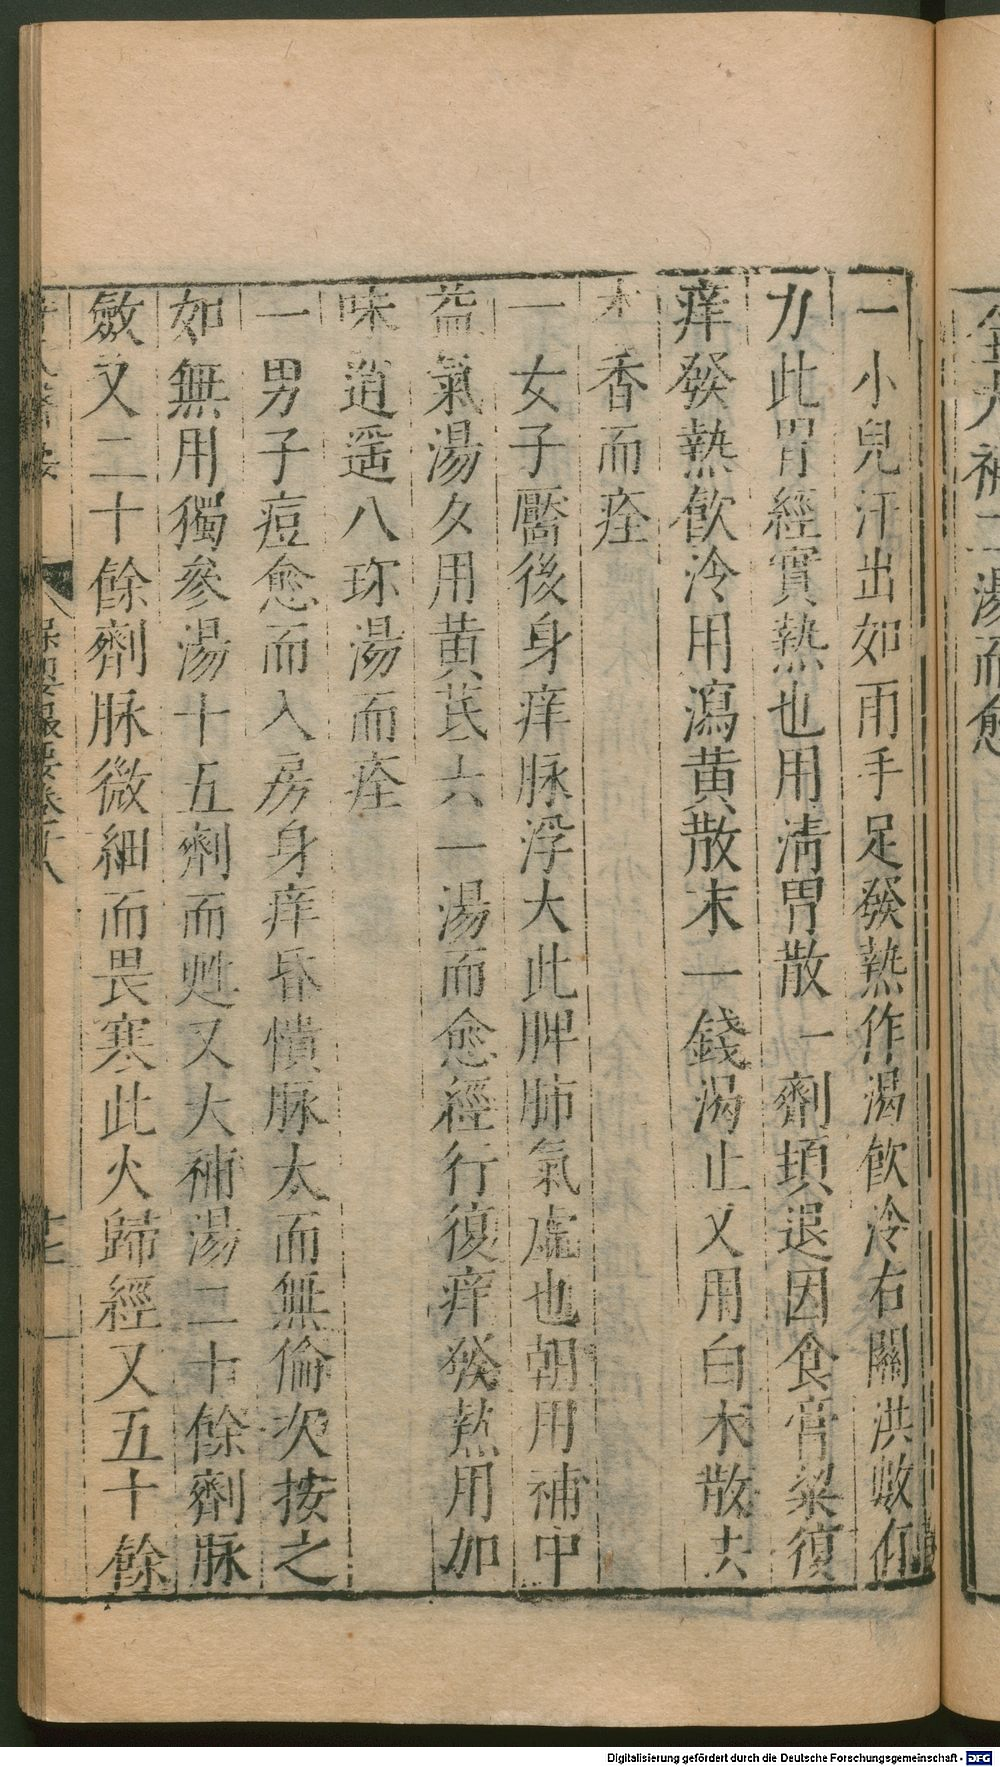 全大補二湯而愈
一小兒汗出如雨手足發熱作渴飲冷右關洪數有
力此胃經實熱也用清胃散一劑頓退因食膏粱復
痒發熱飲冷用瀉黄散末一錢渴止又用白朮散去
木香而痊
一女子靨後身痒脉浮大此脾肺氣虛也朝用補中
益氣湯夕用黄芪六一湯而愈經行復痒發熱用加
味逍遥八珎湯而痊
一男子痘愈而入房身痒昏憒脉大而無倫次按之
如無用獨參湯十五劑而甦又大補湯二十餘劑脉
斂又二十餘劑脉微細而畏寒此火歸經又五十餘
保嬰撮要卷十八
Digitalisierung gefördert durch die Deutsche Forschungsgemeinschaft - DFG